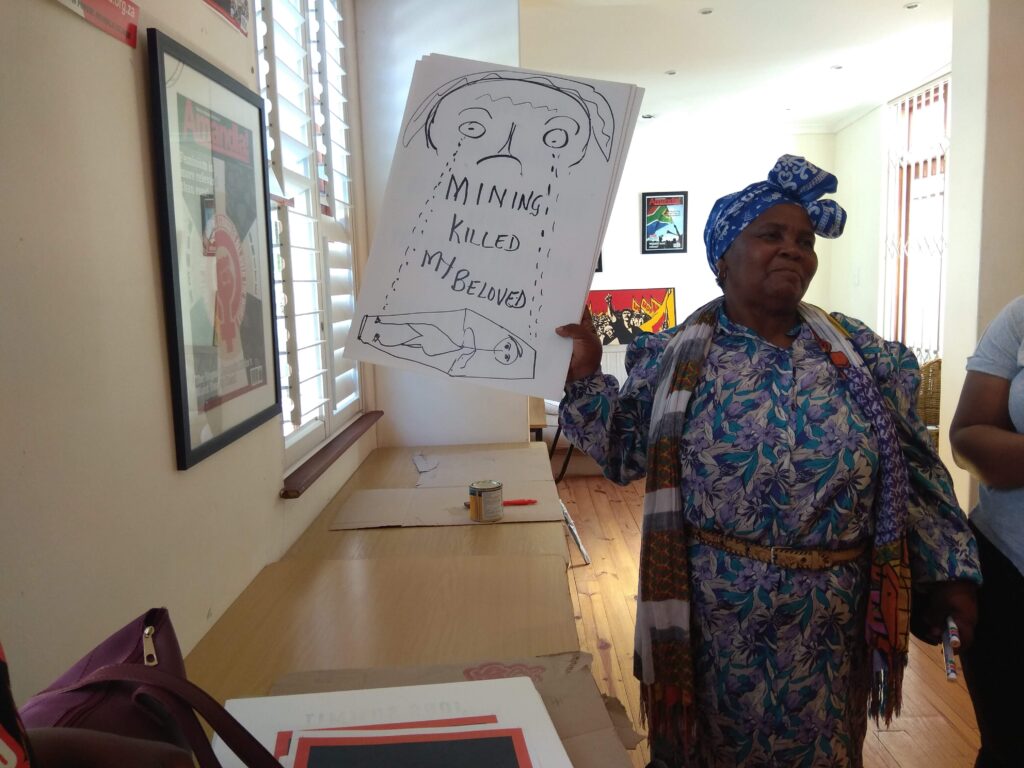 .org.za
Amandla!
MINING
KILLED
MY BELOVED